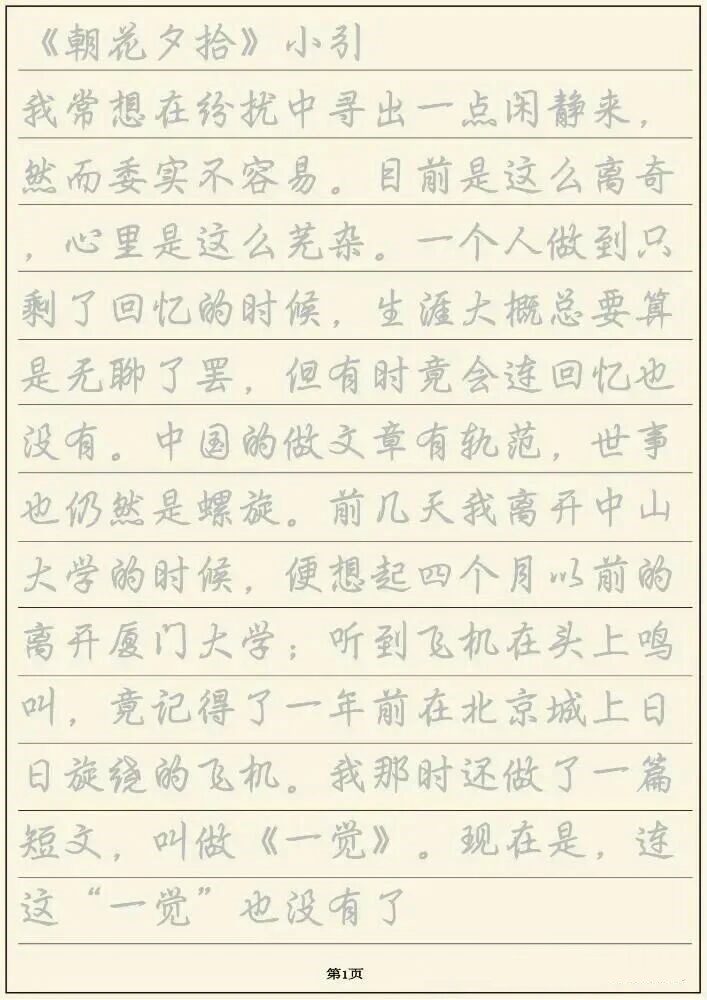 《朝花夕拾》小引
我常想在纷扰中寻出一点闲静来，
然而委实不容易。目前是这么离奇
，心里是这么芜杂。一个人做到只
剩了回忆的时候，生涯大概总要算
是无聊了罢，但有时竟会连回忆也
没有。中国的做文章有轨范，世事
也仍然是螺旋。前几天我离开中山
大学的时候，便想起四个月以前的
离开厦门大学；听到飞机在头上鸣
叫，竟记得了一年前在北京城上日
日旋绕的飞机。我那时还做了一篇
短文，叫做《一觉》。现在是，连
这“一觉”也没有了
第1页